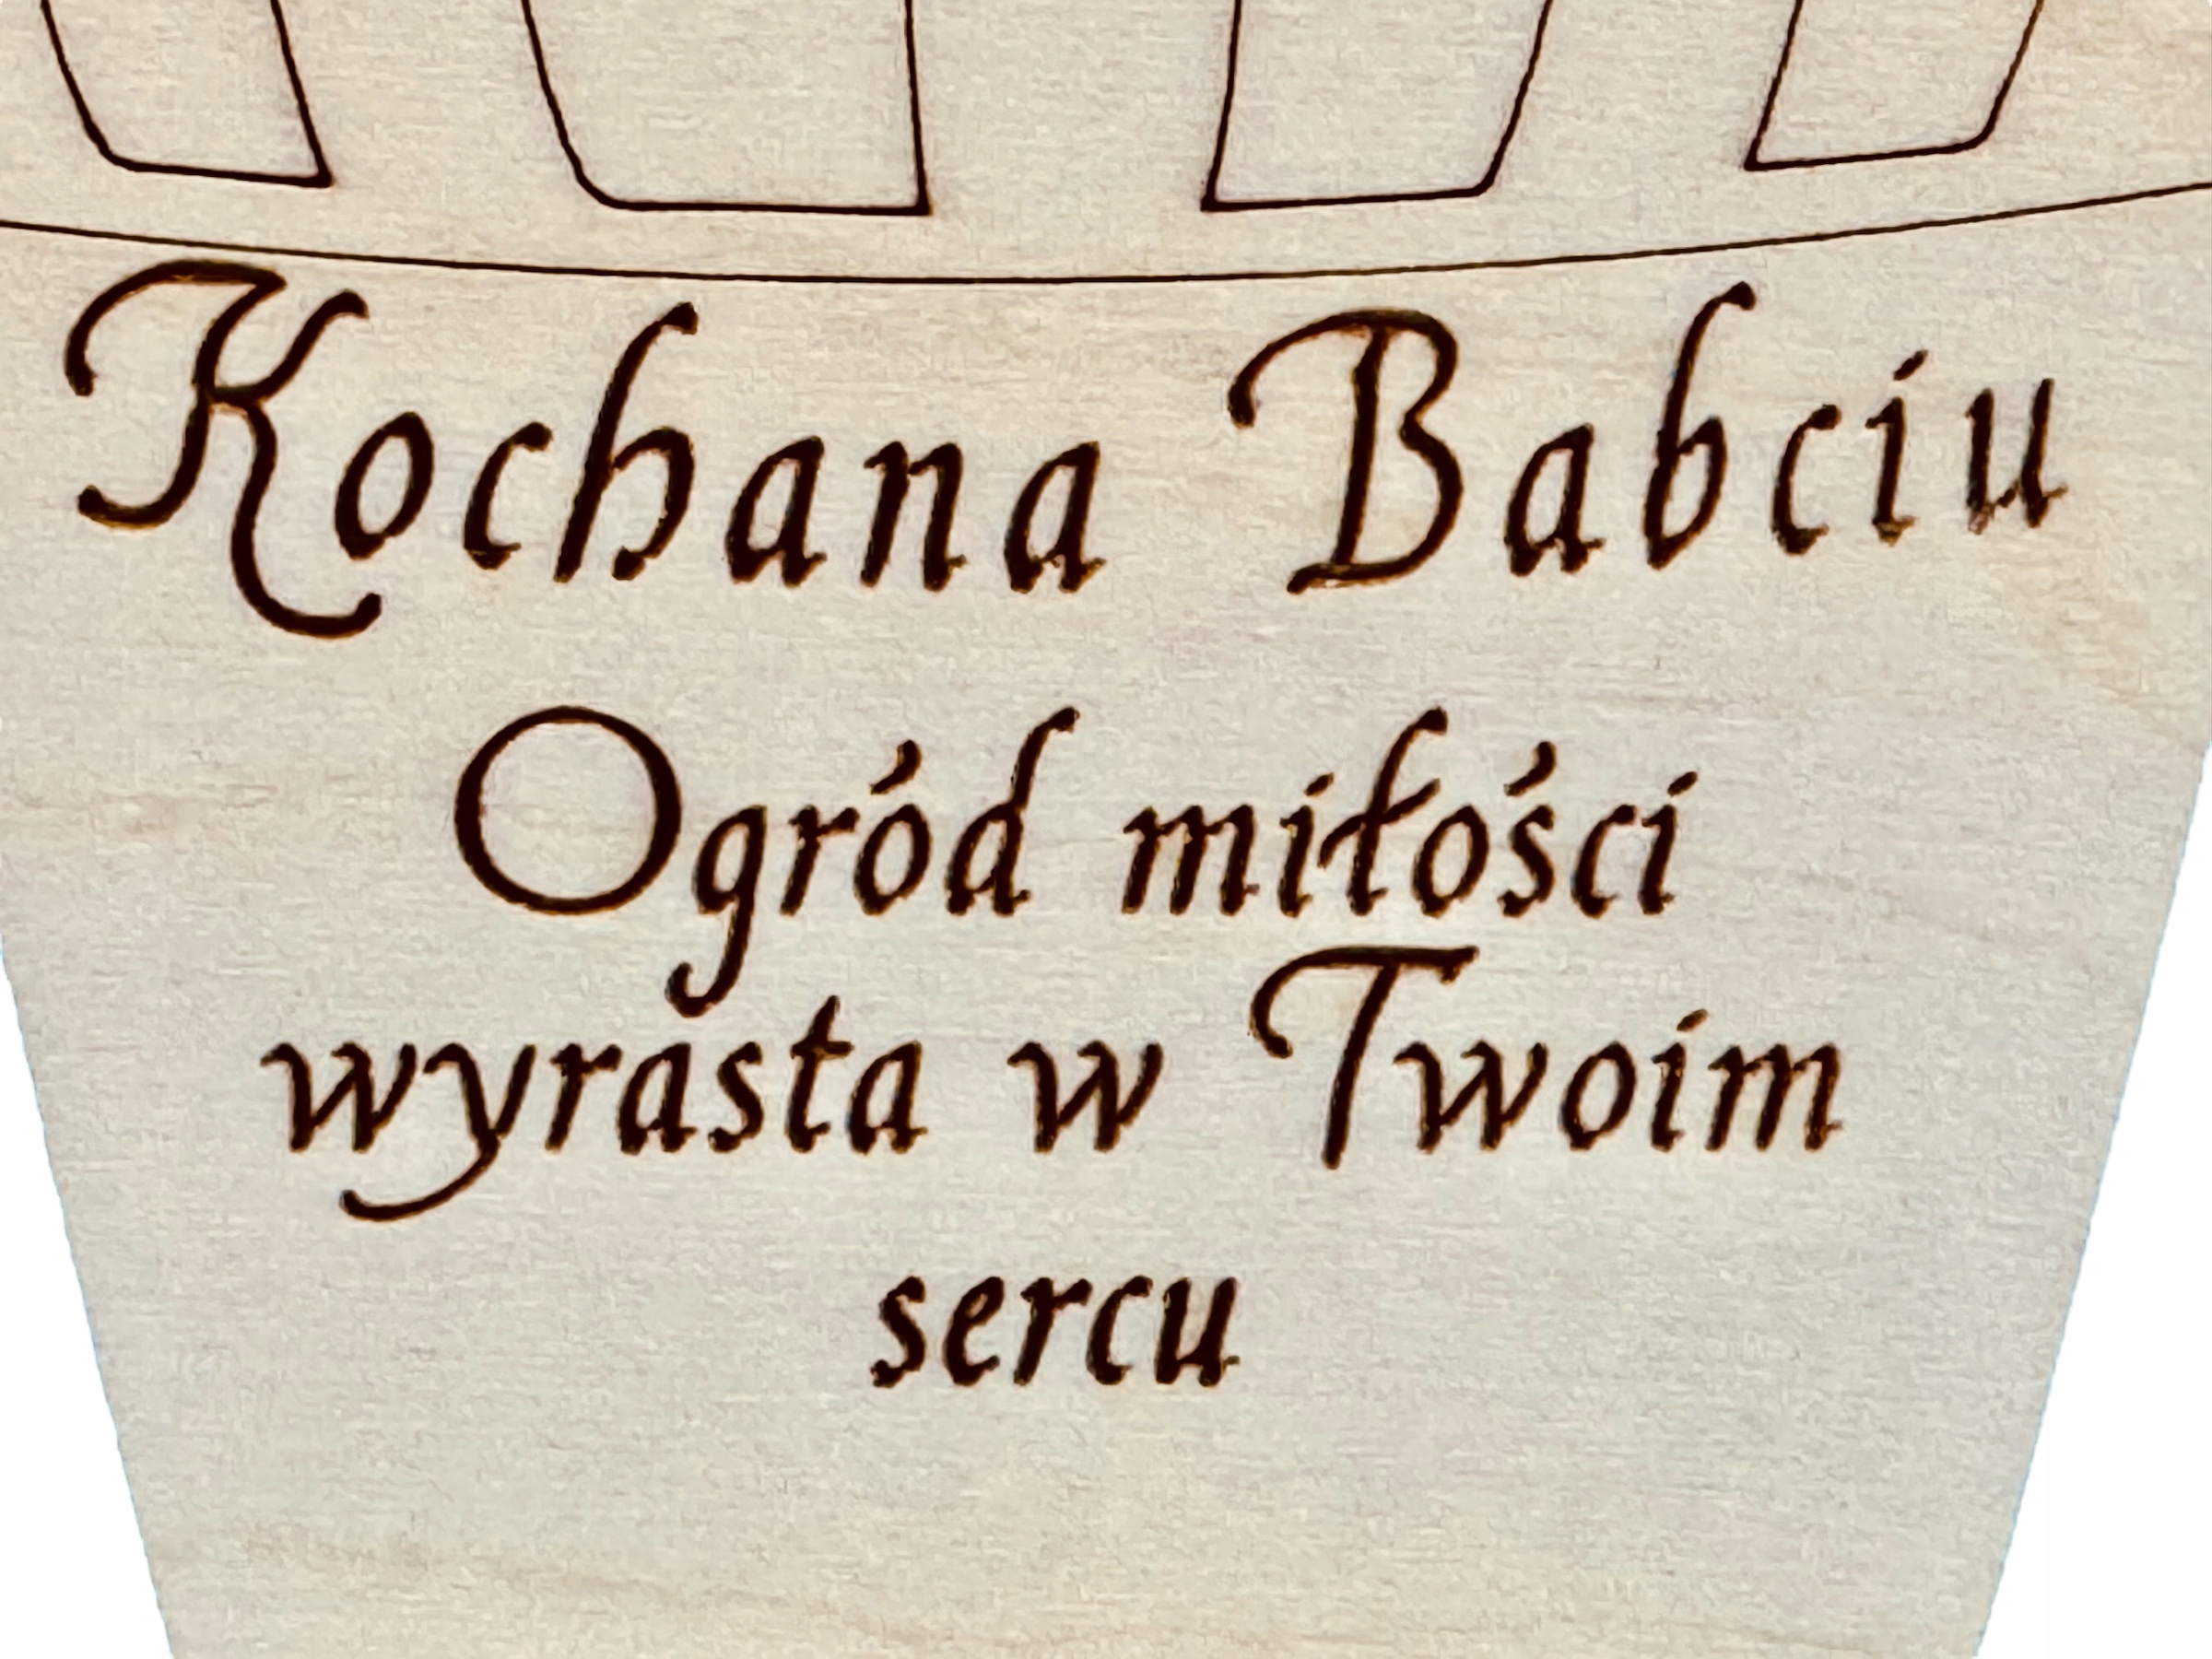 Kochana Babciu
Ogród miłości
wyrasta w Twoim
sercu